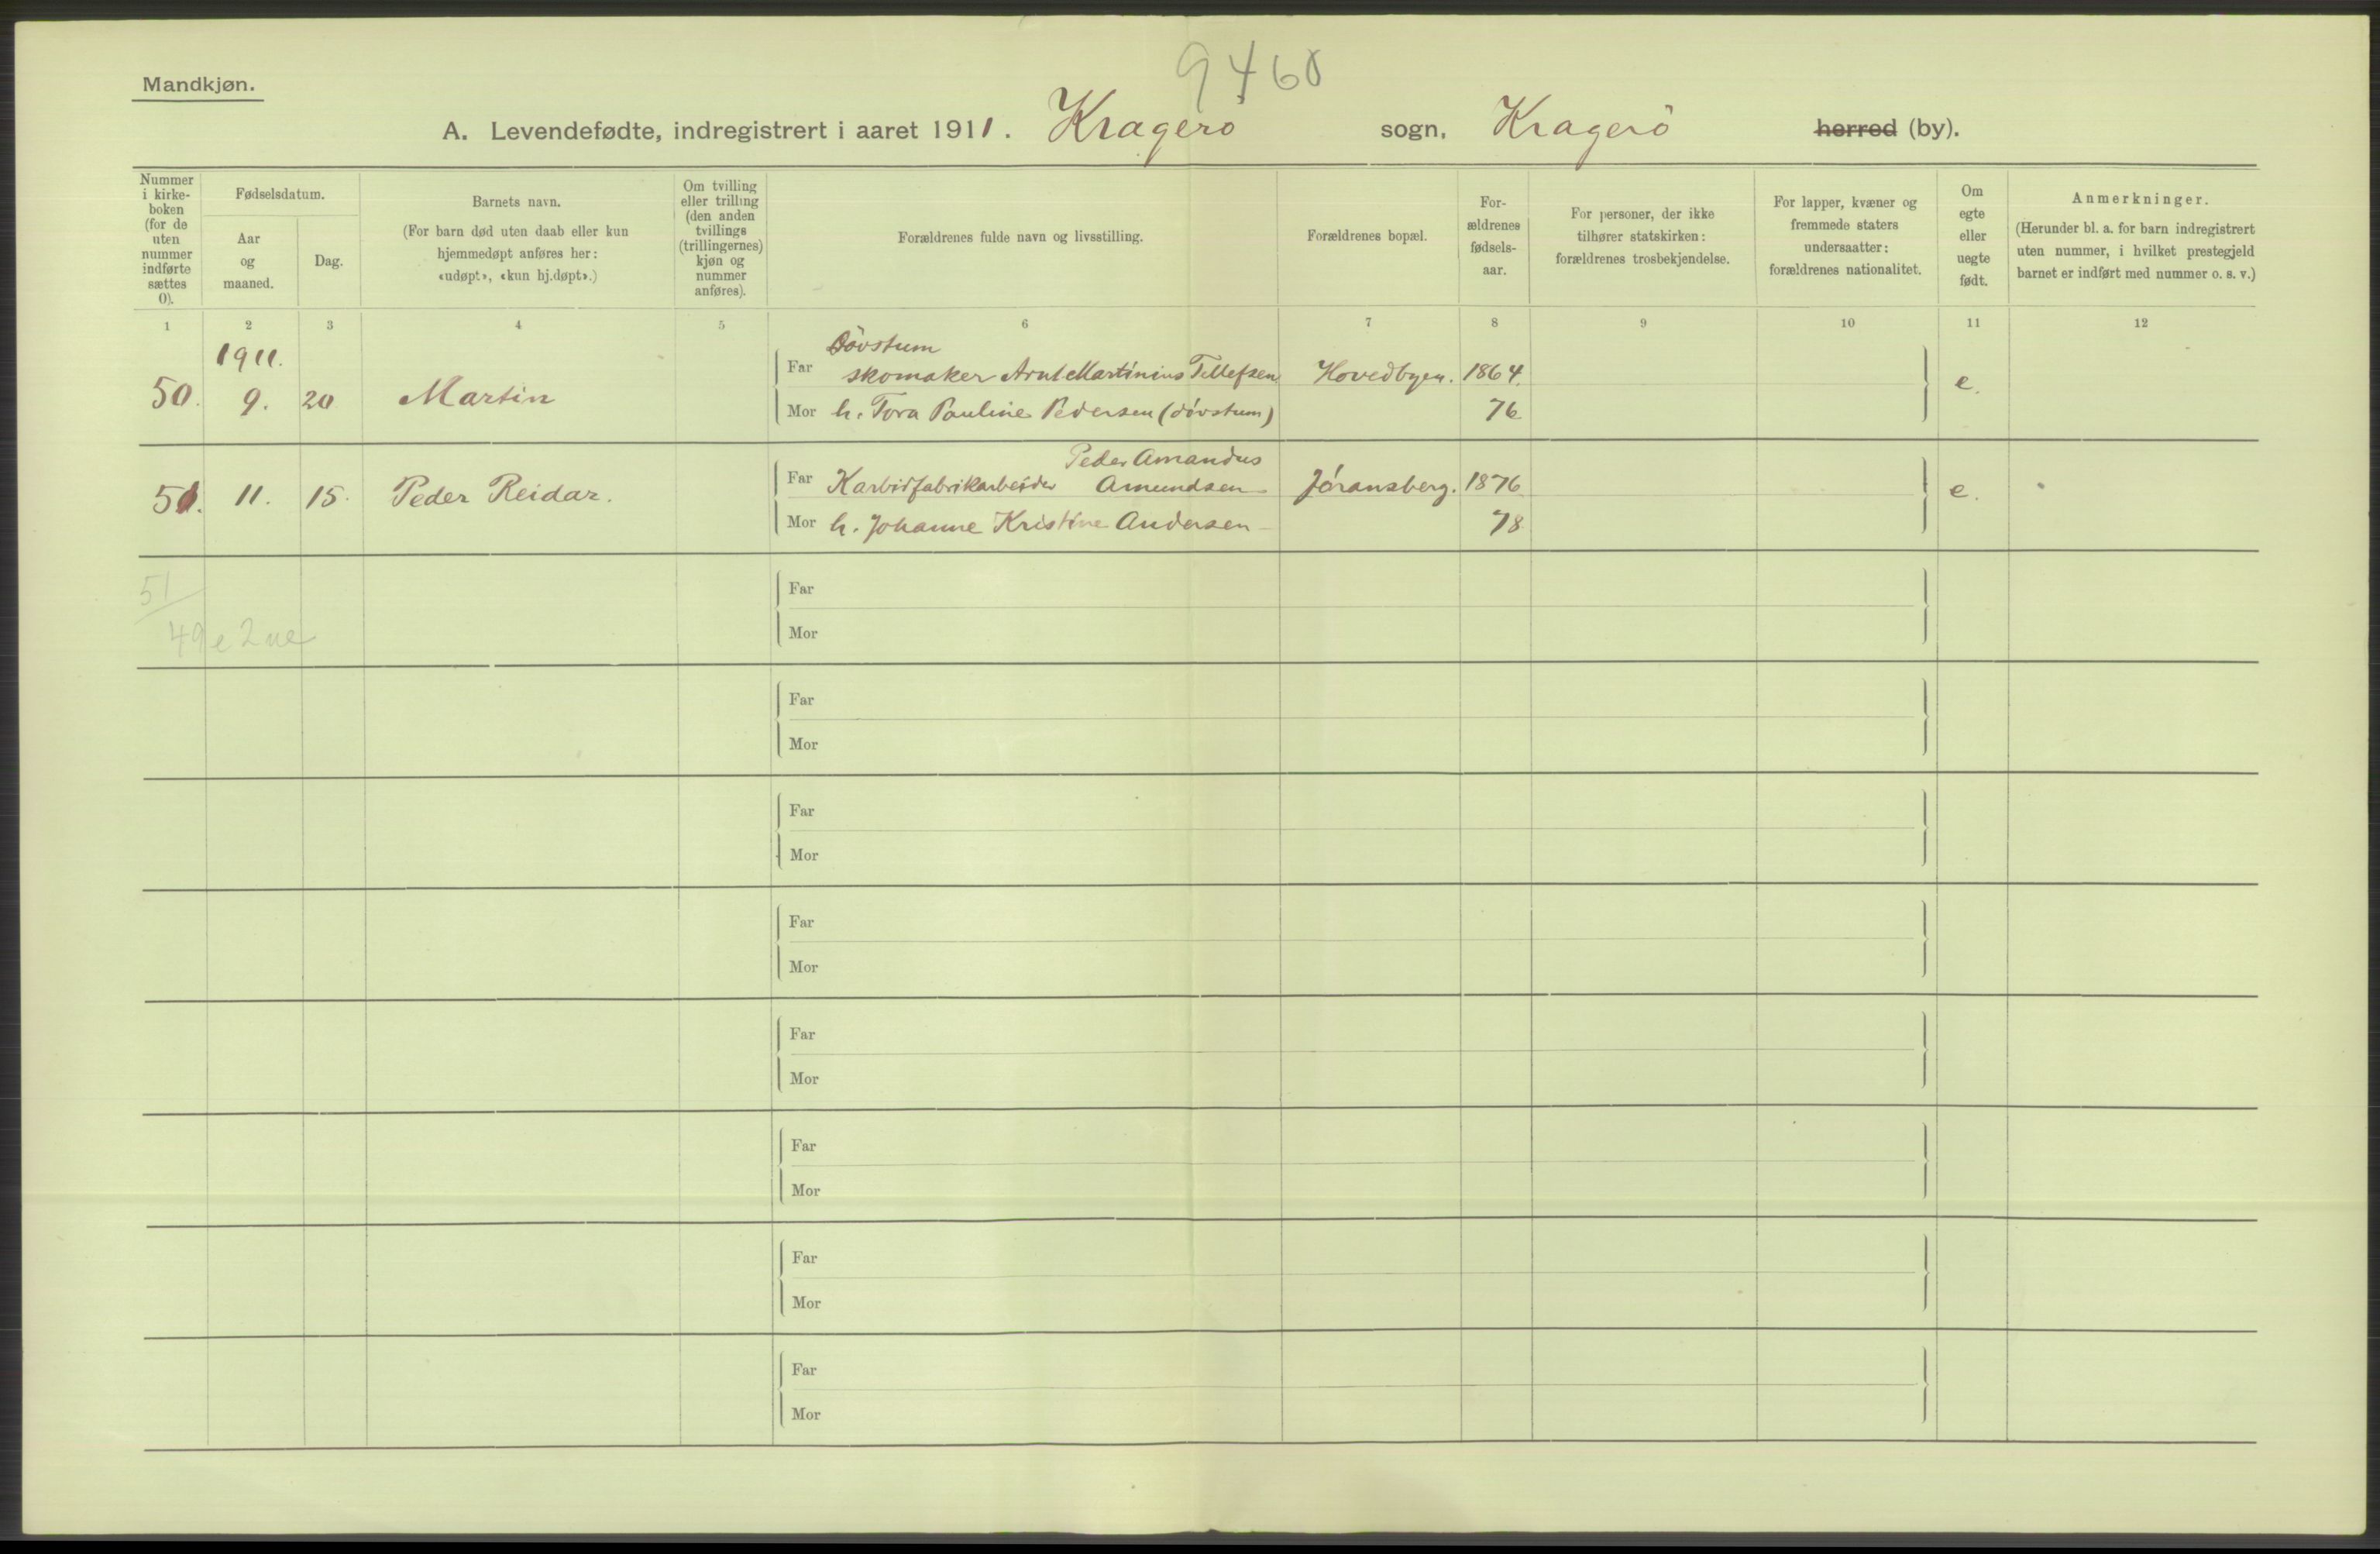 9460
Mandkjøn.
A. Levendefødte, indregistrert i aaret 1911. Kragerö sogn, Kragerö herred (by).
Nummer i kirke- boken (for de uten nummer indførte sættes 0).
Fødselsdatum.
Aar og maaned.
Dag.
Barnets navn.
(For barn død uten daab eller kun
hjemmedøpt anføres her:
«udøpt», «kun hj.døpt».)
Om tvilling
eller trilling
(den anden
tvillings
(trillingernes)
kjøn og
nummer
anføres).
Forældrenes fulde navn og livsstilling.
Forældrenes bopæl.
For-
ældrenes
fødsels-
aar.
For personer, der ikke
tilhører statskirken:
forældrenes trosbekjendelse.
For lapper, kvæner og
fremmede staters
undersaatter:
forældrenes nationalitet.
Om
egte
eller
uegte
født.
Anmerkninger.
(Herunder bl. a. for barn indregistrert
uten nummer, i hvilket prestegjeld
barnet er indført med nummer o. s. v.)
1 2 3 4 5 6 7 8 9 10 11 12
1911.
Dövstum
50. 9. 20 Martin Far skomaker Arnt Martinius Tellefsen Hovedbyen. 1864. e.
Mor h. Tora Pauline Pedersen (dövstum) 76
Peder Amandus
51. 11. 15. Peder Reidar. Far Karbidfabrikarbeider Amundsen Jöransberg. 1876 e.
Mor h. Johanne Kristine Andersen 78
51
49 e 2 ue
Far
Mor
Far
Mor
Far
Mor
Far
Mor
Far
Mor
Far
Mor
Far
Mor
Far
Mor